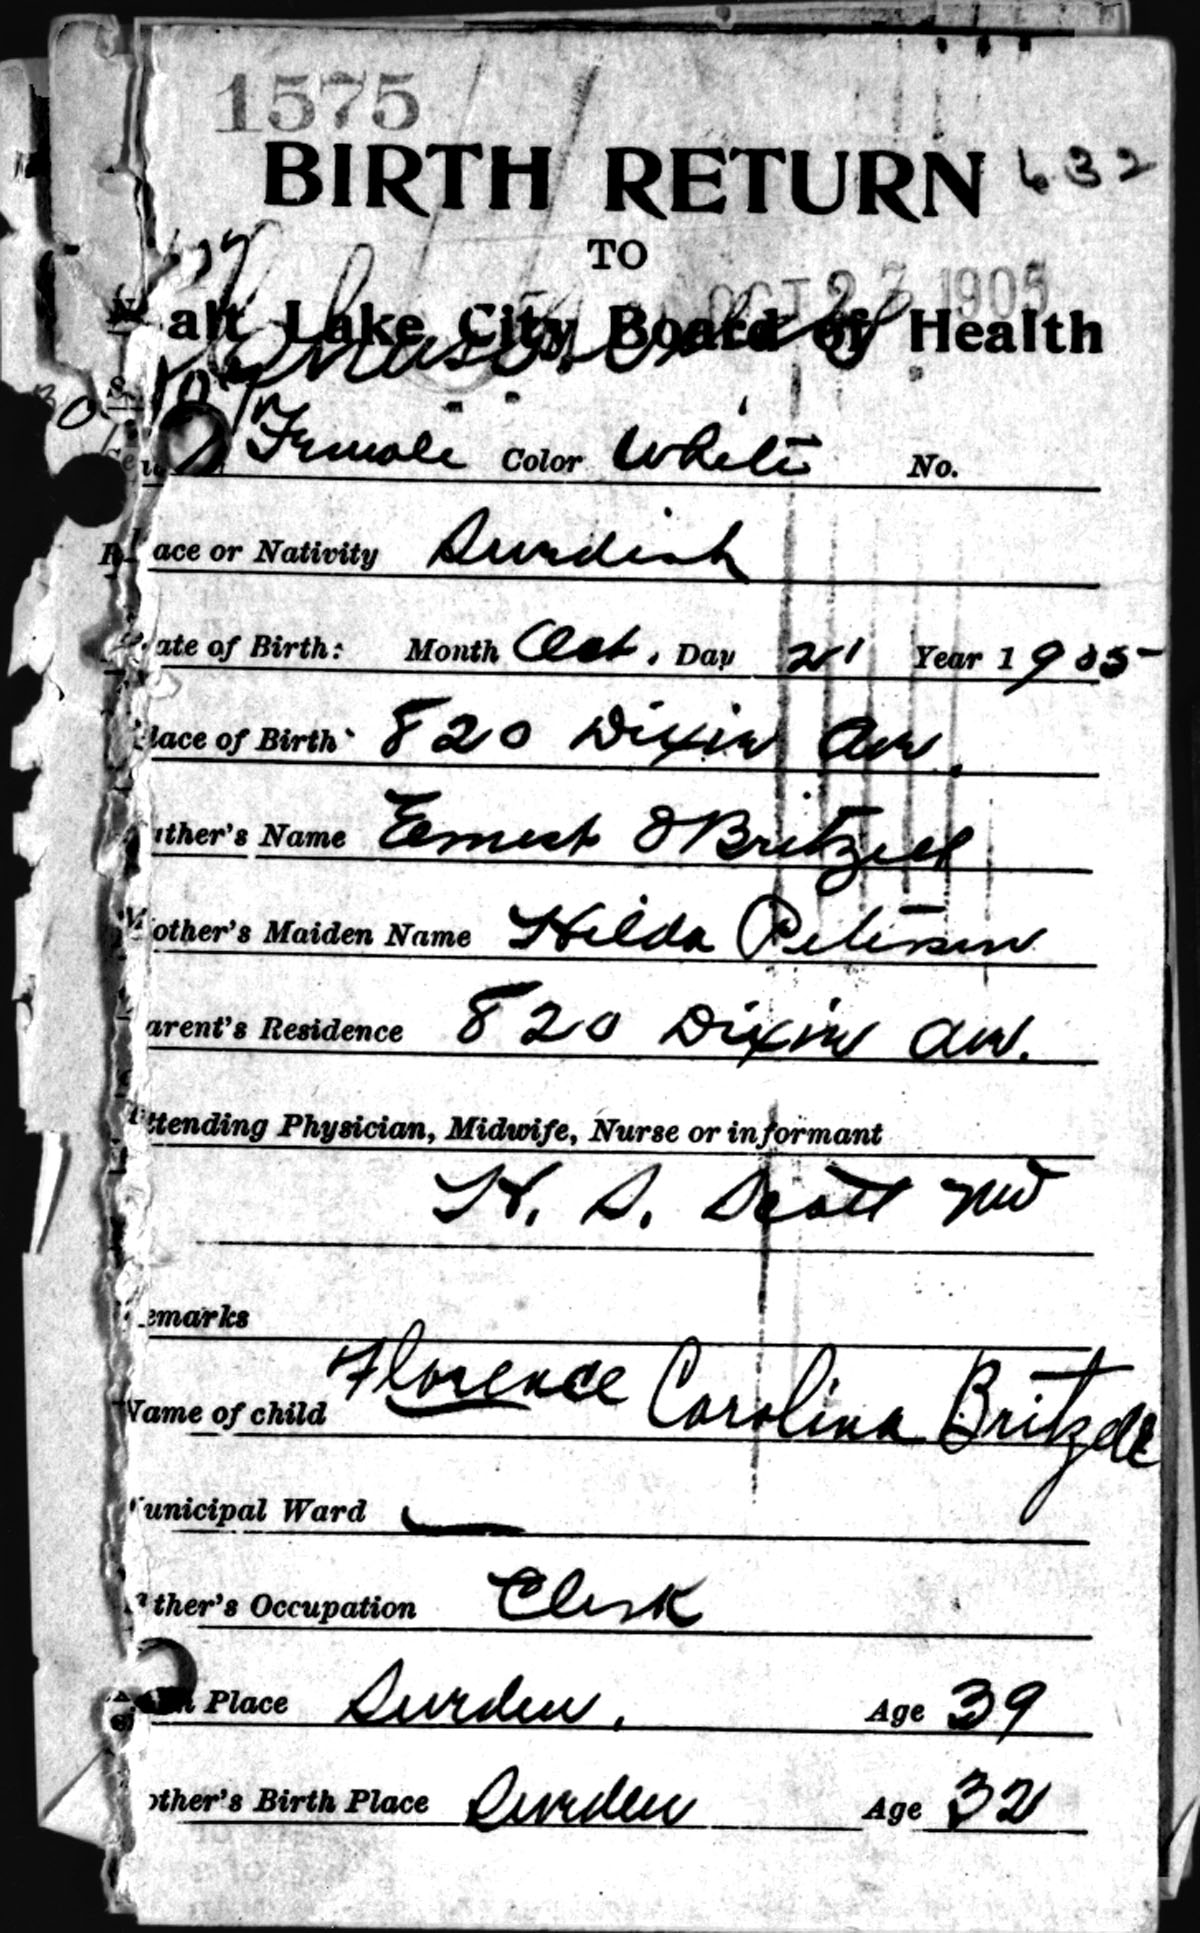 1575
BIRTH RETURN 632
TO
OCT 27 1905
alt Lake City Board of Health
Female Color White No.
ace or Nativity Swedish
ate of Birth: Month Oct. Day 21 Year 1905
lace of Birth 820 Dixie Ave.
ther's Name Ernest J Britzell
other's Maiden Name Hilda Peterson
arent's Residence 820 Dixie Ave.
ttending Physician, Midwife, Nurse or informant
H. S. Scott MD
emarks
Name of child Florence Carolina Britzell
unicipal Ward —
ther's Occupation Clerk
Place Sweden. Age 39
other's Birth Place Sweden Age 32